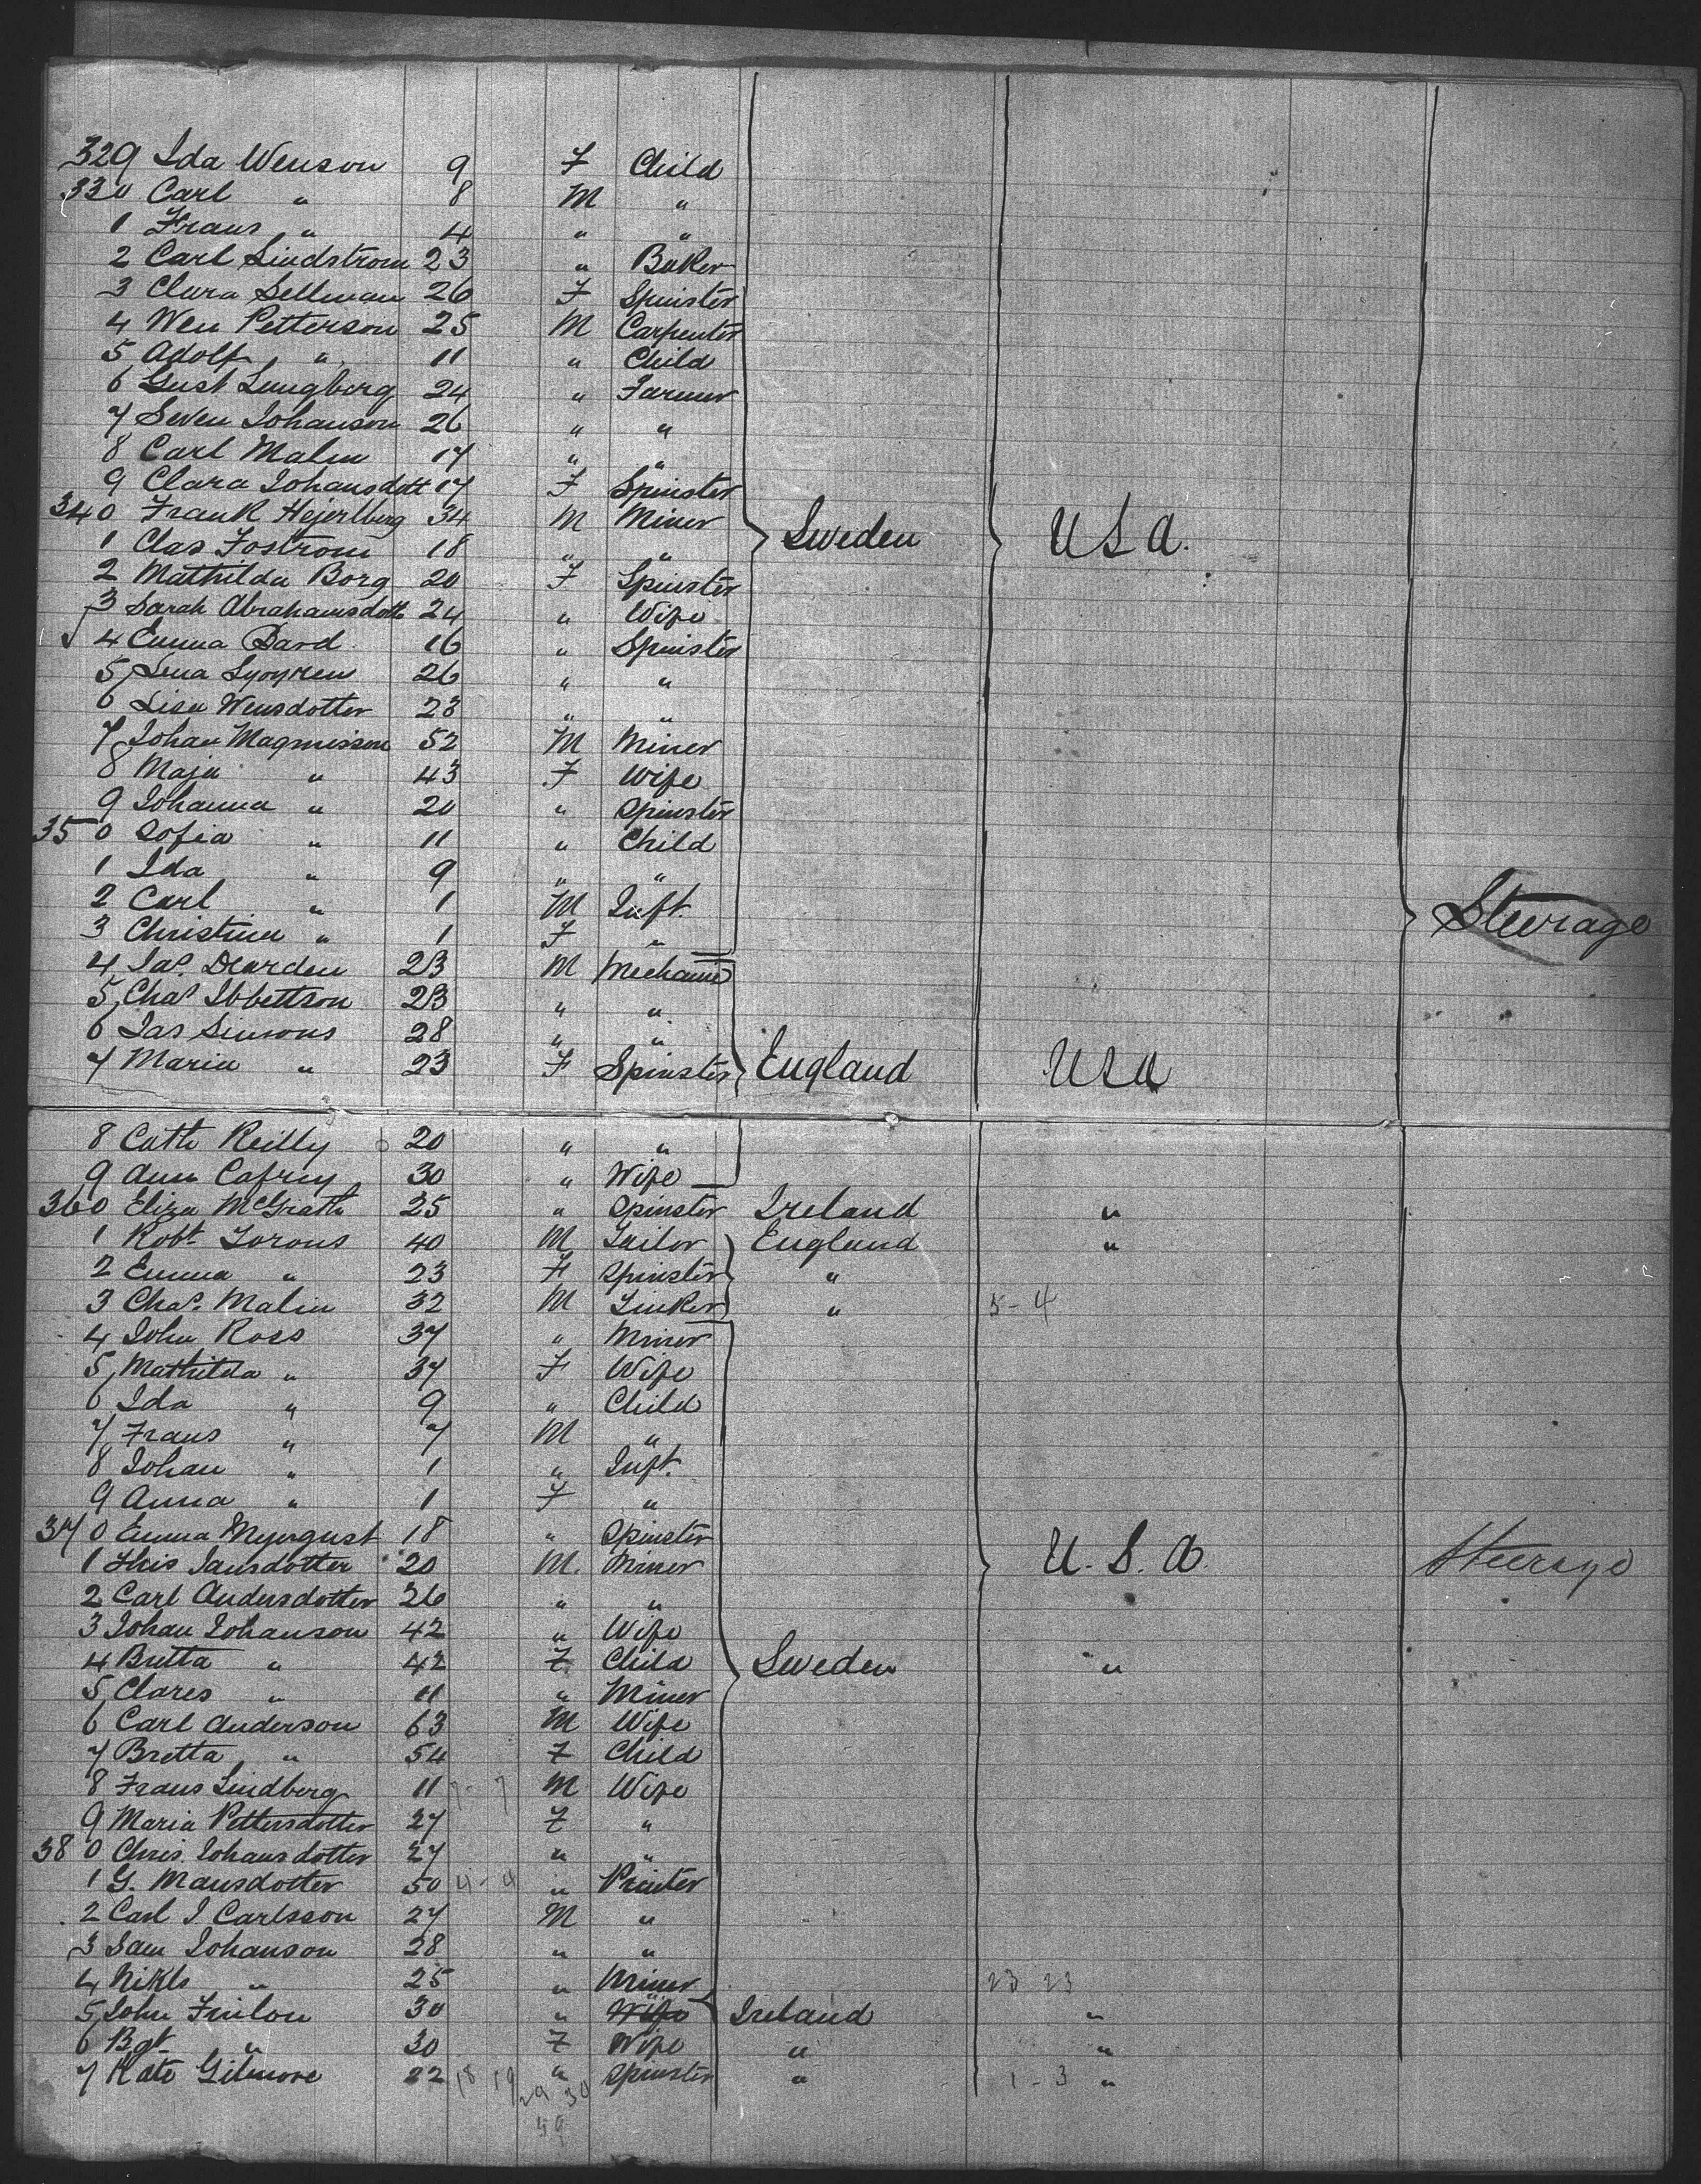 329 Ida Wenson 9 F Child
330 Carl " 8 M "
1 Frans " 4 " "
2 Carl Lindstrom 23 " Baker
3 Clara Sellman 26 F Spinster
4 Wen Petterson 25 M Carpenter
5 Adolf " 11 " Child
6 Gust Lungberg 24 " Farmer
7 Seven Johanson 26 " "
8 Carl Malin 17 " "
9 Clara Johansdott 17 F Spinster
340 Frank Hejerlberg 34 M Miner Sweden USA.
1 Clas Fostrom 18 " "
2 Mathilda Borg 20 F Spinster
3 Sarah Abrahamsdott 24 " Wife
4 Emma Bard 16 " Spinster
5 Lena 26 " "
6 Lisa Wensdotter 23 " "
7 Johan Magnusson 52 M Miner
8 Maja " 43 F Wife
9 Johanna " 20 " Spinster
350 Sofia " 11 " Child
1 Ida " 9 " "
2 Carl " 1 M Inft. Steerage
3 Christina " 1 F "
4 Jas. Dearden 23 M Mechanic
5 Chas Ibbettson 23 " "
6 Jas Simsons 28 " "
7 Maria " 23 F Spinster England USA
8 Cath Reilly 20 " "
9 Ann Cafrey 30 " Wife
360 Eliza McGrath 25 " Spinster Ireland "
1 Robt. Torons 40 M Tailor England "
2 Emma " 23 F Spinster "
3 Chas. Malin 32 M Tinker " 5-4
4 John Ross 37 " Miner
5 Mathilda " 37 F Wife
6 Ida " 9 " Child
7 Frans " 7 M "
8 Johan " 1 " Inft.
9 Anna " 1 F "
370 Emma 18 " Spinster
1 Jansdotter 20 M. Miner U.S.A. Steerage
2 Carl Andersdotter 26 " "
3 Johan Johanson 42 " Wife
4 Britta " 42 F Child Sweden "
5 Clares " 11 " Miner
6 Carl Anderson 63 M Wife
7 Bretta " 54 F Child
8 Frans Lindberg 11 M Wife
9 Maria Pettersdotter 27 F "
380 Chris. Johansdotter 27 " "
1 G. Mansdotter 50 4-4 " Printer
2 Carl J Carlsson 27 M "
3 Sam Johanson 28 " "
4 Nikls " 25 " Miner 23 23
5 John Finlon 30 " Wife Ireland "
6 Bgt. " 30 F Wife " "
7 Kate Gilmore 22 18 19 " Spinster " 1-3 "
29 30
59